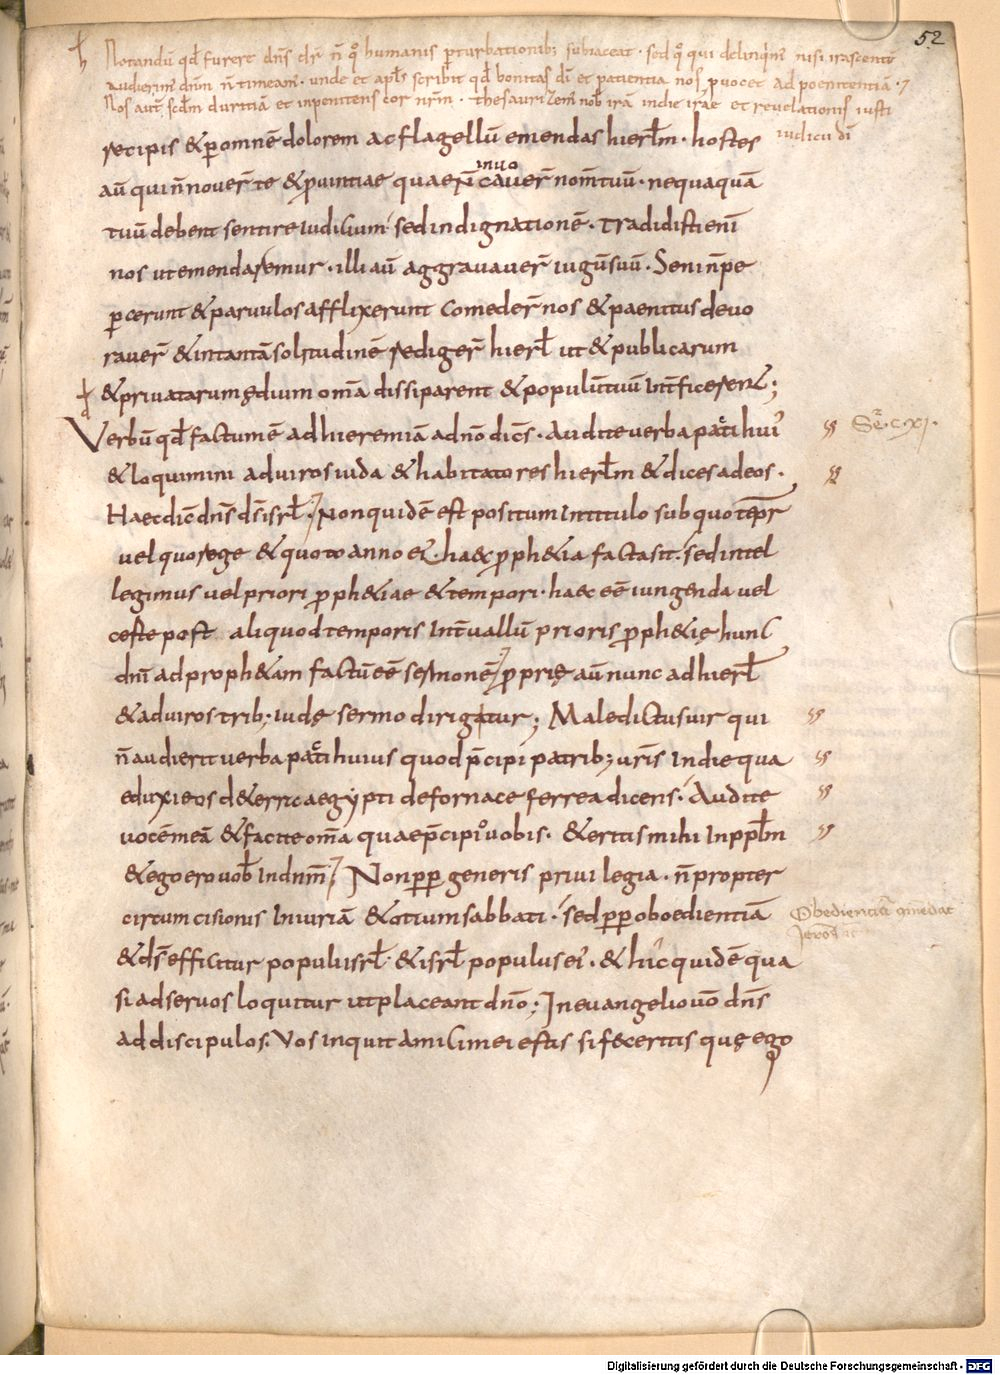 52
Notandū qđ furere dn̄s dr̄ n̄ qͦ humanis ꝑturbationib; subiaceat · sed qͦ qui delinqn̄t nisi irascentē
audierim᷒ dn̄m n̄ timeam᷒ · unde et apl̄s scribit qđ bonitas dī et patientia nos ꝓvocet ad poenitentiā ·
Nos aut̄ scd̄m duritiā et inpenitens cor nr̄m · thesaurizem᷒ nob̄ irā in die irae et revelationis iusti
iudicii dī
recipis &ꝑ omnē dolorem ac flagellū emendas hierł̄m · hostes
aū qui n̄ noveꝛ̄ te &ꝓvintiae quae n̄
invo
caver̄ nom̄ tuū · nequaquā
tuū debent sentire iudicium sed indignationē · tradidisti enī
nos ut emendaremur · illi aū aggravaver̄ iugū suū · Seni n̄ pe
ꝑcerunt & parvulos afflixerunt comeder̄ nos & paenitus devo
raver̄ & in tantā solitudinē rediger̄ hierł ut & publicarum
& privatarum ędium om̄a dissiparent & populū tuū int̄ficerent;
Verbū qđ factum ē ad hieremiā a dn̄o dicēs · Audite verba pacti hui᷒
Sē · CXI ·
& loquimini ad viros iuda & habitatores hierł̄m & dices ad eos ·
Haec dic̄ dn̄s ds̄ isrł · Non quidē est positum in titulo sub quo tēpr̄
vel quo rege & quoto anno ei᷒ · haec ꝓph&ia facta sit · sed intel
legimus vel priori ꝓph&iae & tempori · haec eē iungenda vel
certe post aliquod temporis int̄vallū prioris ꝓph&ię hunc
dn̄i ad proph&am factū eē sermonē ꝓprię aū nunc ad hierł
& ad viros trib; iudę sermo dirigatur; Maledictus vir qui
n̄ audierit verba pacti huius quod p̄cipi patrib; vr̄is in die qua
eduxi eos de terra aegypti de fornace ferrea dicens · Audite
vocē meā & facite om̄a quae p̄cipio vobis · & eritis mihi in ppł̄m
& ego ero vob̄ in dn̄m; Non ꝓꝑ generis privilegia · n̄ propter
circumcisionis iniuriā & otium sabbati · sed ꝓꝑ oboedientiā
Obedientia
& ds̄ efficitur populi isrł · & isrł populus ei᷒ · & hic quidē qua
si ad servos loquitur ut placeant dn̄o; In evangelio v̄o dn̄s
ad discipulos · Vos inquit amici mei estis si feceritis quę ego
Digitalisierung gefördert durch die Deutsche Forschungsgemeinschaft - DFG